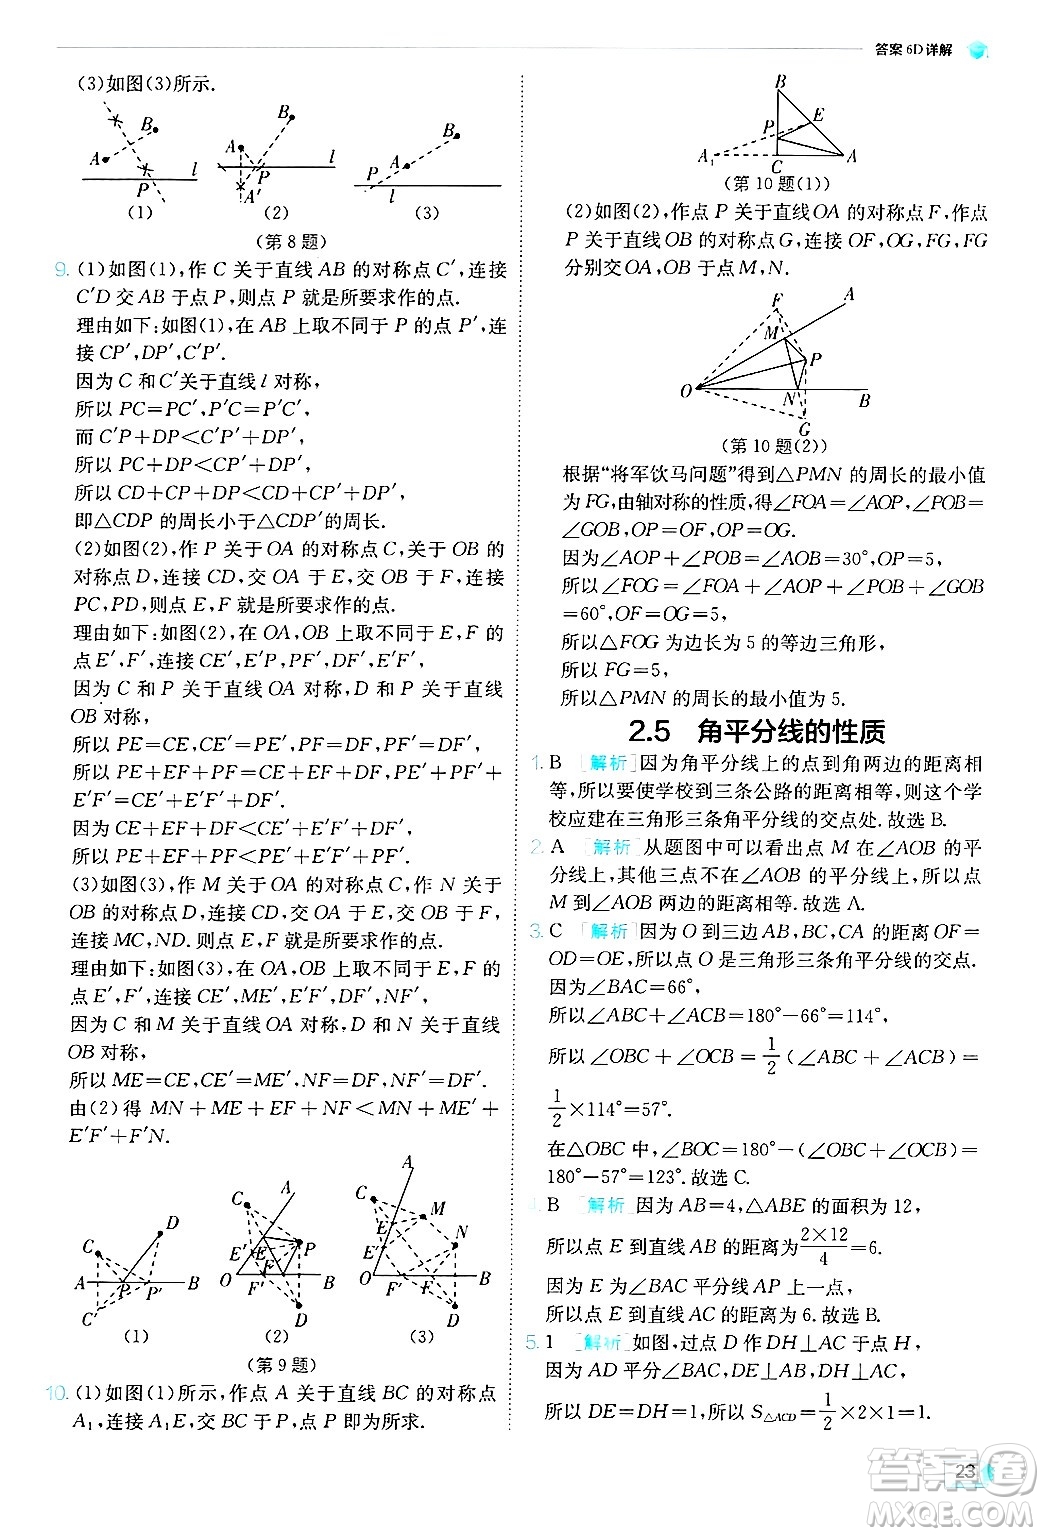 答案 6D详解
(3)如图(3)所示.
A B P l
(1)
A B P l A′
(2)
P A B l
(3)
(第 8 题)
9. (1)如图(1),作 C 关于直线 AB 的对称点 C′,连接
C′D 交 AB 于点 P,则点 P 就是所要求作的点.
理由如下:如图(1),在 AB 上取不同于 P 的点 P′,连
接 CP′,DP′,C′P′.
因为 C 和 C′关于直线 l 对称,
所以 PC=PC′,P′C=P′C′,
而 C′P+DP<C′P′+DP′,
所以 PC+DP<CP′+DP′,
所以 CD+CP+DP<CD+CP′+DP′,
即△CDP 的周长小于△CDP′的周长.
(2)如图(2),作 P 关于 OA 的对称点 C,关于 OB 的
对称点 D,连接 CD,交 OA 于 E,交 OB 于 F,连接
PC,PD,则点 E,F 就是所要求作的点.
理由如下:如图(2),在 OA,OB 上取不同于 E,F 的
点 E′,F′,连接 CE′,E′P,PF′,DF′,E′F′,
因为 C 和 P 关于直线 OA 对称,D 和 P 关于直线
OB 对称,
所以 PE=CE,CE′=PE′,PF=DF,PF′=DF′,
所以 PE+EF+PF=CE+EF+DF,PE′+PF′+
E′F′=CE′+E′F′+DF′,
因为 CE+EF+DF<CE′+E′F′+DF′,
所以 PE+EF+PF<PE′+E′F′+PF′.
(3)如图(3),作 M 关于 OA 的对称点 C,作 N 关于
OB 的对称点 D,连接 CD,交 OA 于 E,交 OB 于 F,
连接 MC,ND.则点 E,F 就是所要求作的点.
理由如下:如图(3),在 OA,OB 上取不同于 E,F 的
点 E′,F′,连接 CE′,ME′,E′F′,DF′,NF′,
因为 C 和 M 关于直线 OA 对称,D 和 N 关于直线
OB 对称,
所以 ME=CE,CE′=ME′,NF=DF,NF′=DF′,
由(2)得 MN+ME+EF+NF<MN+ME′+
E′F′+F′N.
C D A P P′ B C′
(1)
C A E′ E P O F′ F B D
(2)
A C M E N E′ O F′ F B D
(3)
(第 9 题)
10. (1)如图(1)所示,作点 A 关于直线 BC 的对称点
A₁,连接 A₁E,交 BC 于 P,点 P 即为所求.
B E P A₁ C A
(第 10 题(1))
(2)如图(2),作点 P 关于直线OA 的对称点 F,作点
P 关于直线 OB 的对称点 G,连接 OF,OG,FG,FG
分别交 OA,OB 于点 M,N.
F A M P O N B G
(第 10 题(2))
根据“将军饮马问题”得到△PMN 的周长的最小值
为 FG,由轴对称的性质,得∠FOA=∠AOP,∠POB=
∠GOB,OP=OF,OP=OG.
因为∠AOP+∠POB=∠AOB=30°,OP=5,
所以∠FOG=∠FOA+∠AOP+∠POB+∠GOB
=60°,OF=OG=5,
所以△FOG 为边长为 5 的等边三角形,
所以 FG=5,
所以△PMN 的周长的最小值为 5.
2.5 角平分线的性质
1. B [解析]因为角平分线上的点到角两边的距离相
等,所以要使学校到三条公路的距离相等,则这个学
校应建在三角形三条角平分线的交点处.故选 B.
2. A [解析]从题图中可以看出点 M 在∠AOB 的平
分线上,其他三点不在∠AOB 的平分线上,所以点
M 到∠AOB 两边的距离相等.故选 A.
3. C [解析]因为 O 到三边AB,BC,CA 的距离 OF=
OD=OE,所以点 O 是三角形三条角平分线的交点.
因为∠BAC=66°,
所以∠ABC+∠ACB=180°−66°=114°,
所以 ∠OBC + ∠OCB = 1/2 (∠ABC + ∠ACB) =
1/2×114°=57°.
在△OBC 中,∠BOC=180°−(∠OBC+∠OCB)=
180°−57°=123°.故选 C.
4. B [解析]因为 AB=4,△ABE 的面积为 12,
所以点 E 到直线 AB 的距离为 2×12/4=6.
因为 E 为∠BAC 平分线 AP 上一点,
所以点 E 到直线 AC 的距离为 6.故选 B.
5. 1 [解析]如图,过点 D 作 DH⊥AC 于点 H,
因为 AD 平分∠BAC,DE⊥AB,DH⊥AC,
所以 DE=DH=1,所以 S△ACD=1/2×2×1=1.
23
答案圈
MXQE.COM